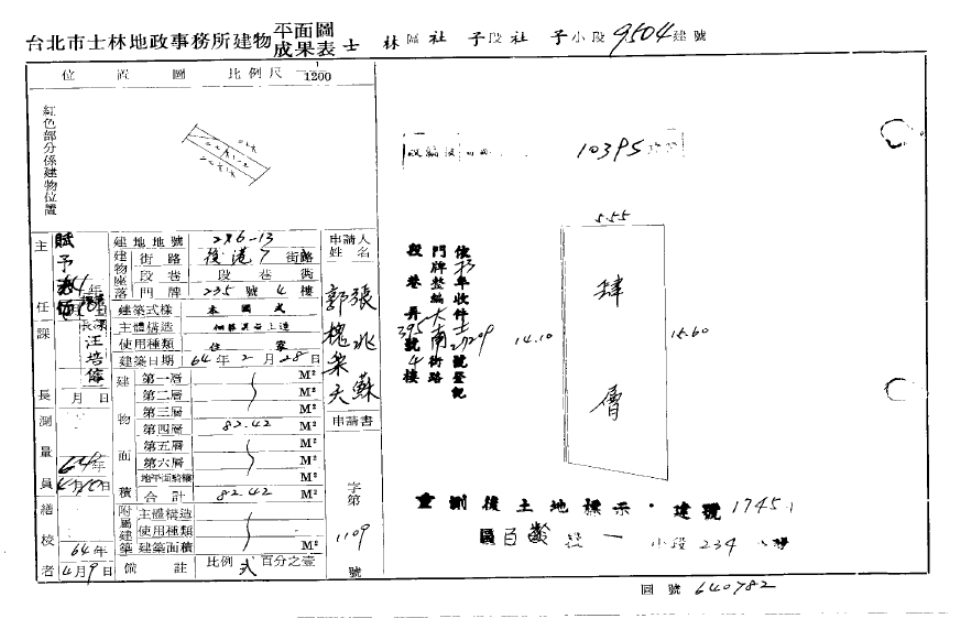 台北市士林地政事務所建物平面圖成果表 士林區社子段社子小段9504建號
位置圖 比例尺 1/1200
紅色部分係建物位置
10395
5.55
14.10
15.60
肆層
主任
課長
測量員
繕校者
建地地號 286-13
建物座落 街路 後港 街路
段巷 段 巷 衖
門牌 235號 4樓
建築式樣 本國式
主體構造
使用種類 住家
建築日期 64年2月28日
建物面積 第一層 M²
第二層 M²
第三層 M²
第四層 82.42 M²
第五層 M²
第六層 M²
地平面騎樓 M²
合計 82.42 M²
附屬建築 主體構造
使用種類
建築面積 M²
備註 比例 式百分之壹
汪培
月 日
64年
64年
4月9日
申請人姓名
張兆蘇
郭槐
申請書
字第
1109
號
門牌整編大南街路
段巷弄395號4樓
重測後土地標示・建號1745
區百齡段一小段234
圖號 640782